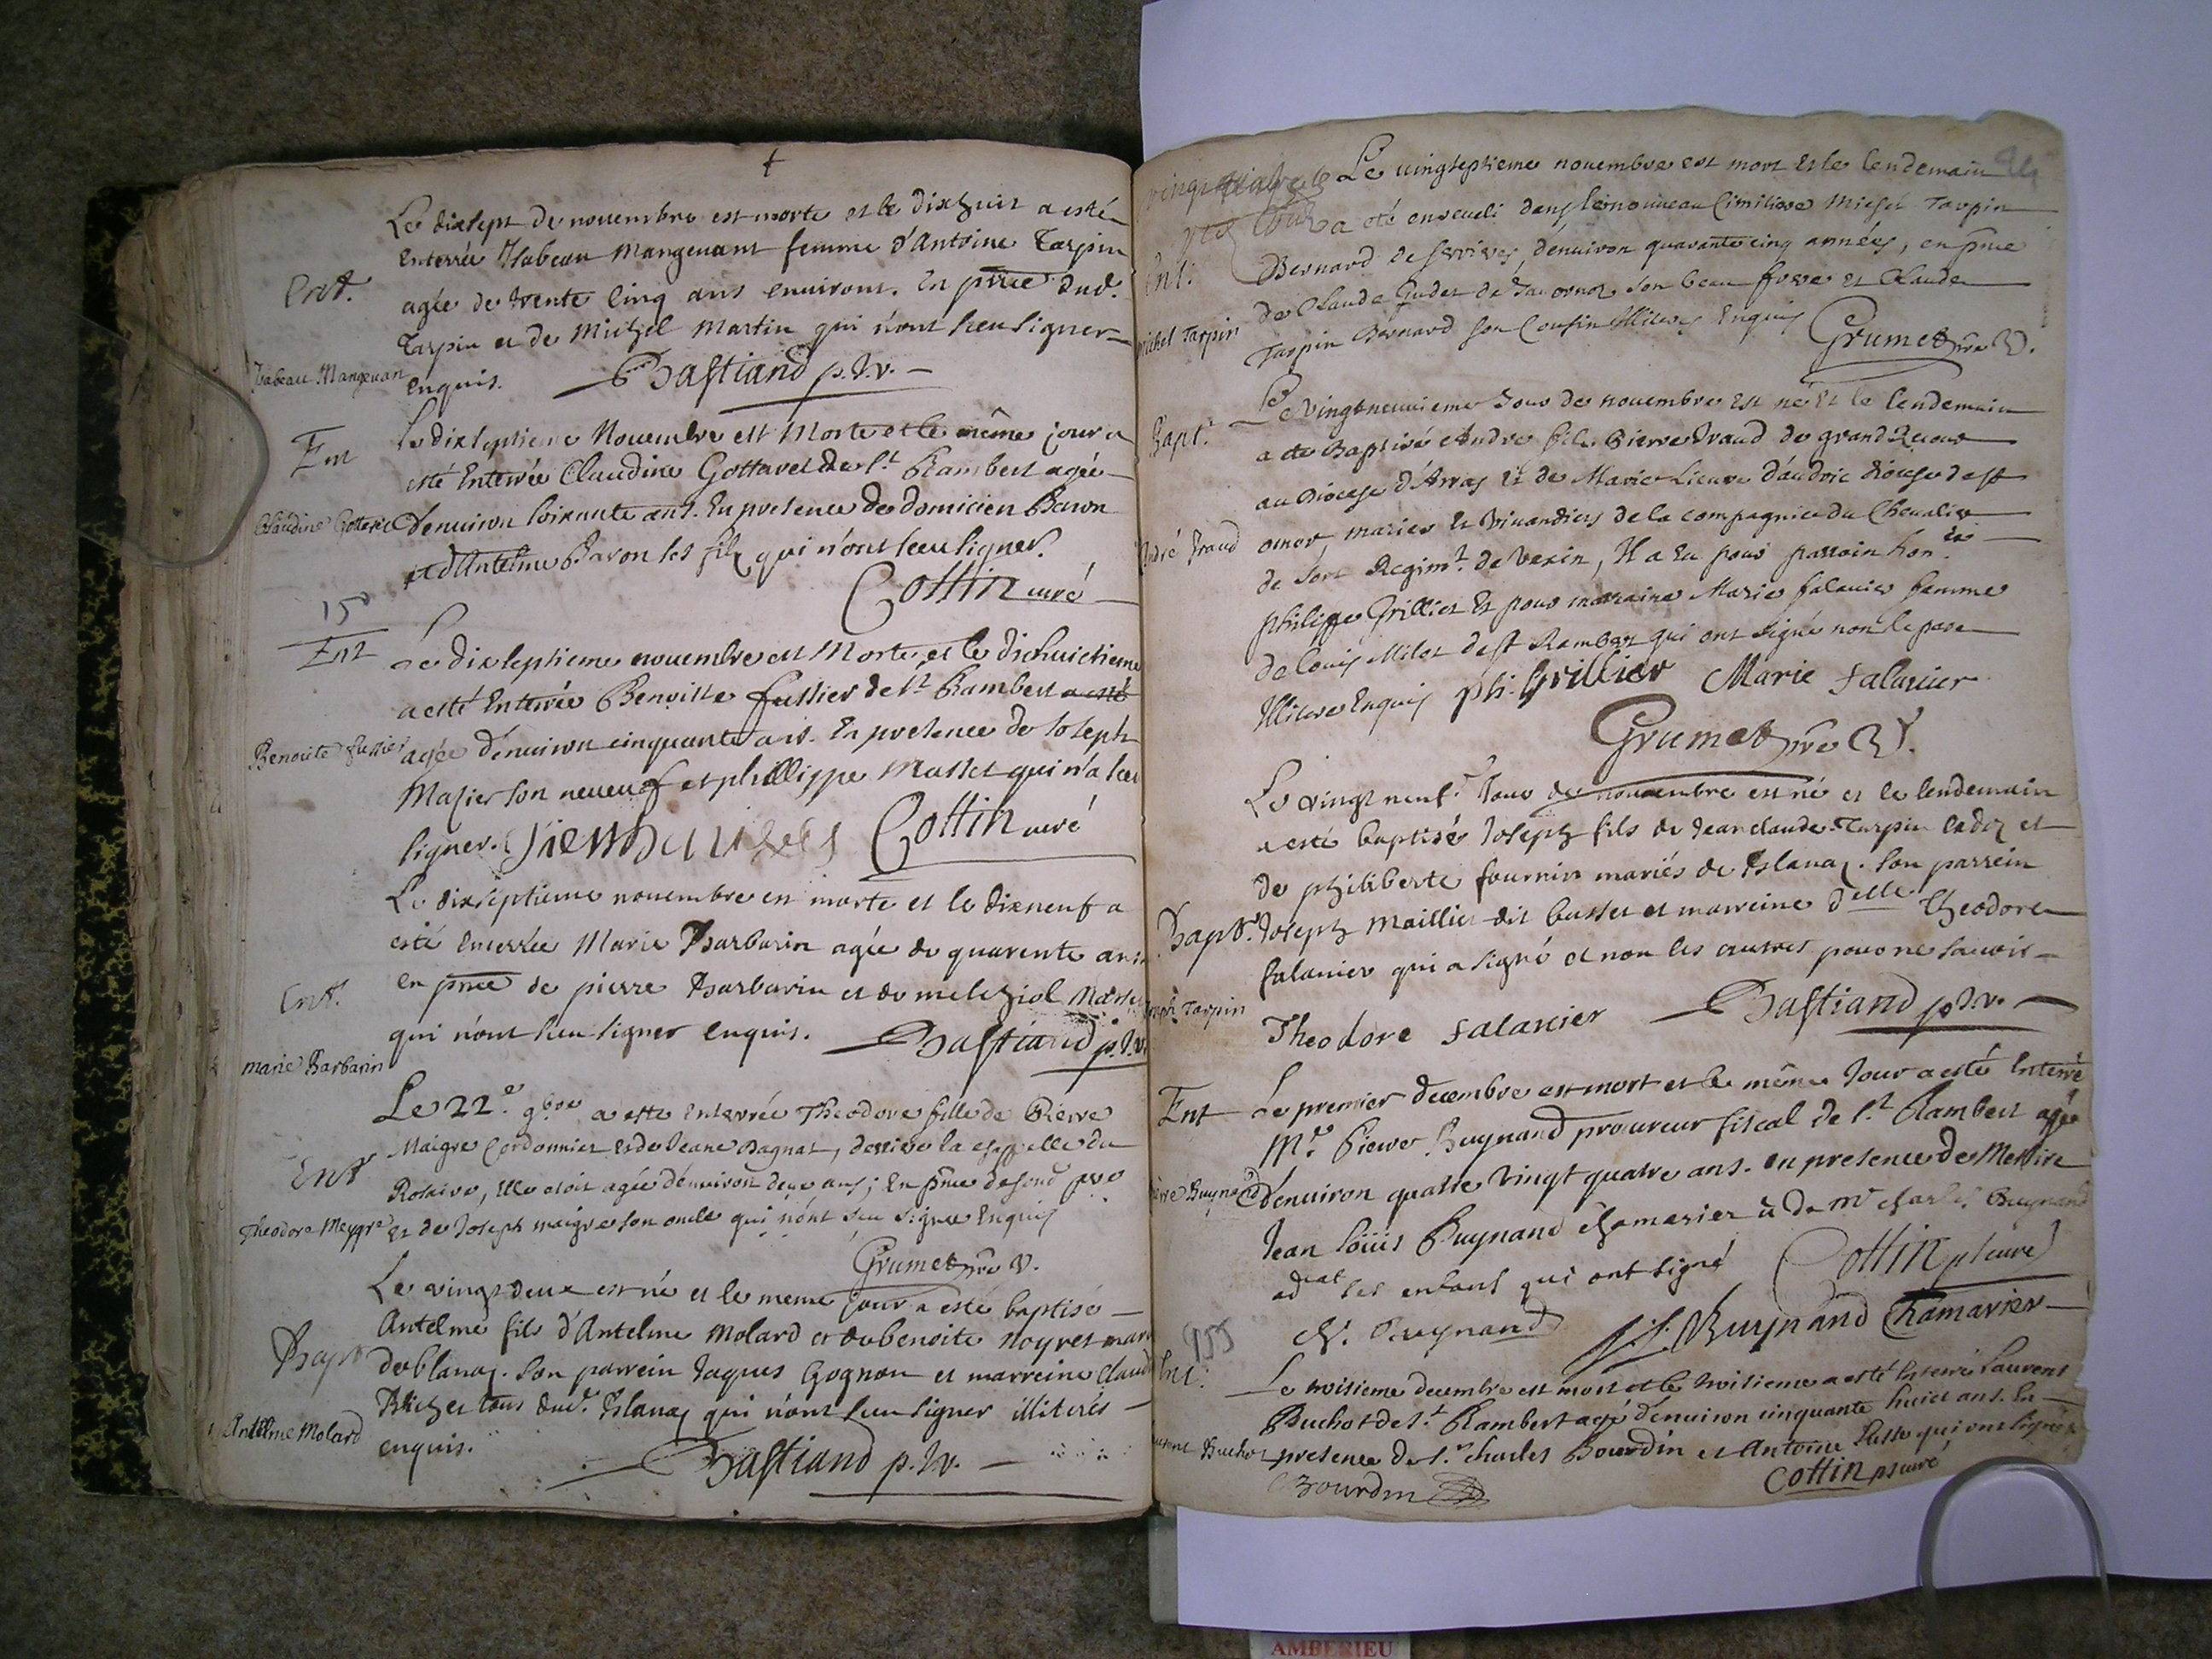 Le dixsept de novembre est morte et le dixhuit a esté
Enterrée Isabeau Mangenant femme d'Antoine Tarpin
Ent.
agée de trente cinq ans environs. En pnce dud.
Tarpin et de Michel Martin qui n'ont sceu signer
Isabeau Mangenan
enquis. Bastiand p. v.
Ent
Le dixseptieme Novembre est Morte et le même jour a
esté Enterrée Claudine Gottaret de St Rambert agée
Claudine Gottaret
d'environ soixante ans. En presence de domicien Baron
et d'Antelme Baron ses fils qui n'ont sceu signer.
Cottin curé
15
Ent
Le dixseptieme novembre est Morte et le dixhuictieme
a esté Enterrée Benoitte fussier de St Rambert a esté
Benoite fussier
agée d'environ cinquante ans. En presence de Joseph
Masier son neveuf et phillippe Masset qui n'a sceu
signer. Cottin curé
Le dixseptieme novembre est morte et le dixneuf a
esté enterrée Marie Barbarin agée de quarente ans
Ent.
en pnce de pierre Barbarin et de melchiol
qui n'ont sceu signer enquis. Bastiand p. v.
marie Barbarin
Le 22e. 9bre a esté enterrée Theodore fille de Pierre
Maigre Cordonnier et de Jeane Dagnat, derriere la chappelle du
Ent
Rosaire, Elle etoit agée d'environ deux ans; En pnce de
Theodore Meygre
et de Joseph maigre son oncle qui n'ont sceu signer Enquis
Grumet pre V.
Le vingt deux est né et le meme jour a esté baptisé
Antelme fils d'Antelme Molard et de benoite noyret
Bapt
de blanaz. Son parrein Jaques Gognon et marreine
tous dud. Blanaz qui n'ont sceu signer illiterés
Antelme Molard
enquis.
Bastiand p. v.
Le vingtseptieme novembre est mort et le lendemain
a été enseveli dans le nouveau Cimitiere Michel Tarpin
Ent.
Bernard de Serrieres, d'environ quarante cinq années, en pnce
de Claude Judet de son beau frere et Claude
Michel Tarpin
Tarpin Bernard son Cousin Enquis Grumet pre V.
Bapt.
Le Vingtneuvieme Jour de novembre est né et le lendemain
a eté Baptisé André fils Pierre fraud de grand
au Diocese d'Arras et de Marie Lieure d'audric diocese de st
André fraud
omer mariés et Vivandiers de la compagnie du Chevalier
de Regimt. de Vexin, Il a eu pour parrain hon.
philippe Grillier Et pour marraine Marie falavier femme
de Louis Milot de st Rambert qui ont signé non le pere
Enquis Phi. Grillier Marie falavier
Grumet pre V.
Le vingt neuf. Jour de novembre est né et le lendemain
a esté baptisé Joseph fils de Jean claude Tarpin et
de philiberte fournier mariés de Blanaz. son parrein
Bapt.
Joseph Maillier dit busset et marreine delle Theodore
falavier qui a signé et non les autres pour ne sçavoir
Tarpin
Theodore falavier Bastiand p. v.
Ent
Le premier decembre est mort et le même Jour a esté Enterré
Mre Pierre Buynand procureur fiscal de St. Rambert agé
Buynand
d'environ quatre Vingt quatre ans. en presence de Messire
Jean loüis Buynand Chamarier et de mr charles Buynand
adcat ses enfans qui ont signé Cottin p curé
Ch. Buynand J. L. Buynand Chamarier
955
Ent.
Le troisieme decembre est mort et le troisieme a esté Enterré Laurent
Buchot de St. Rambert agé d'environ cinquante huict ans. En
Laurent Buchot
presence de Sr. charles Bourdin et Antoine qui ont signé
Bourdin Cottin p curé
AMBERIEU